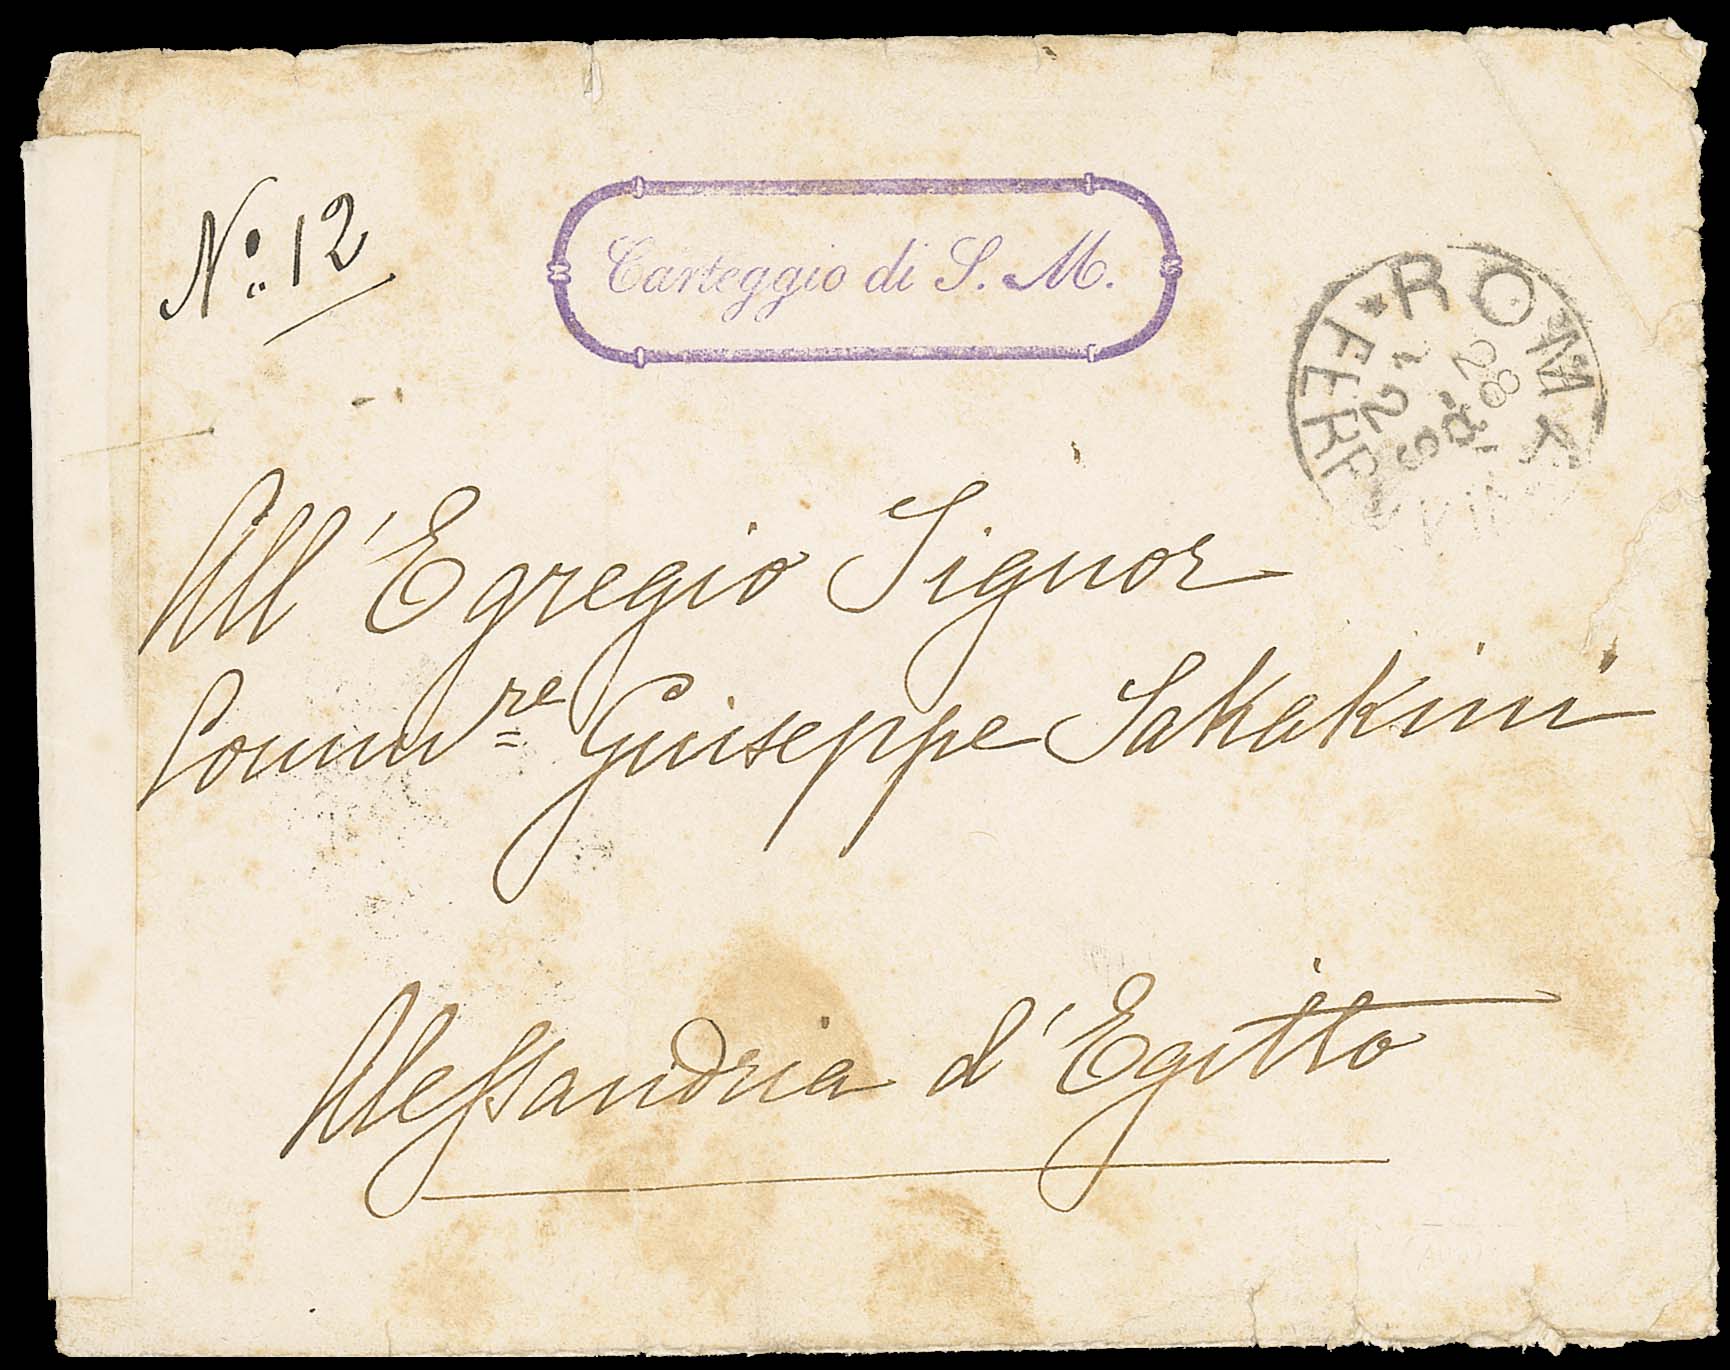 No. 12
Carteggio di S. M.
ROMA
FERROVIA
28
All'Egregio Signor
Commre Giuseppe Sakakini
Alessandria d'Egitto